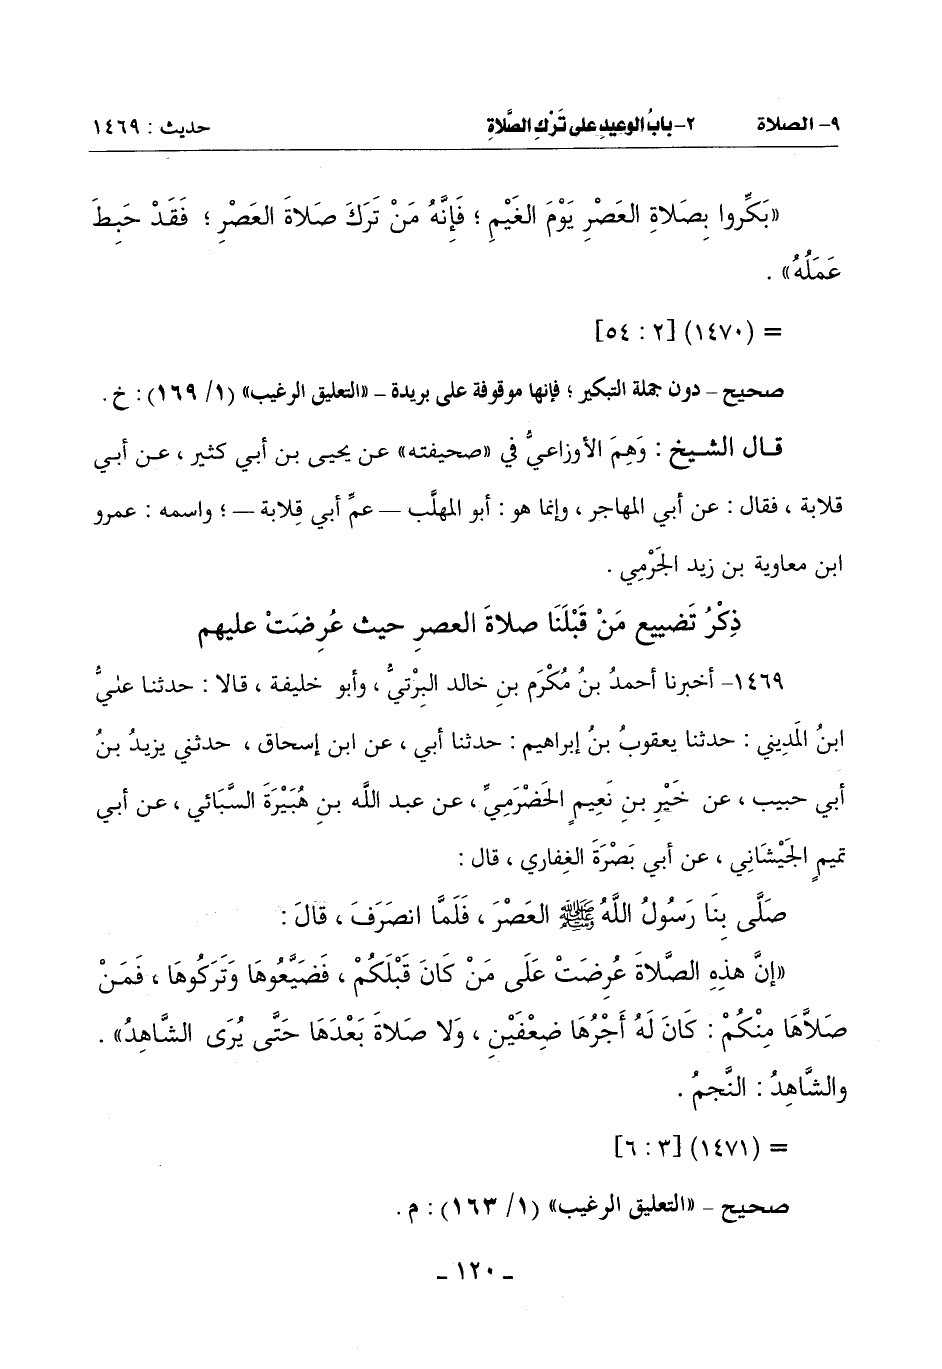 ٩- الصلاة ٢- بابُ الوعيدِ على تَرْكِ الصَّلاةِ حديث : ١٤٦٩
«بَكِّروا بِصَلاةِ العَصْرِ يَوْمَ الغَيْمِ ؛ فَإِنَّهُ مَنْ تَرَكَ صَلاةَ العَصْرِ ؛ فَقَدْ حَبِطَ
عَمَلُهُ» .
= (١٤٧٠) [٢ : ٥٤]
صحيح – دون جملة التبكير ؛ فإنها موقوفة على بريدة – «التعليق الرغيب» (١/ ١٦٩) : خ .
قال الشيخ : وَهِمَ الأوزاعيُّ في «صحيفته» عن يحيى بن أبي كثير ، عن أبي
قلابة ، فقال : عن أبي المهاجر ، وإنما هو : أبو المهلَّب – عمِّ أبي قِلابة – ؛ واسمه : عمرو
ابن معاوية بن زيد الجَرْمِي .
ذِكْرُ تَضييع مَنْ قَبْلَنَا صلاةَ العصرِ حيث عُرِضَتْ عليهم
١٤٦٩- أخبرنا أحمدُ بنُ مُكْرَم بنِ خالد البِرْتيُّ ، وأبو خليفة ، قالا : حدثنا عليُّ
ابنُ المَدِيني : حدثنا يعقوبُ بنُ إبراهيم : حدثنا أبي ، عن ابن إسحاق ، حدثني يزيدُ بنُ
أبي حبيب ، عن خَيْرِ بنِ نَعِيمٍ الحَضْرَمِيِّ ، عن عبد اللَّه بنِ هُبَيْرَةَ السَّبَائي ، عن أبي
تميمٍ الجَيْشَانِي ، عن أبي بَصْرَةَ الغِفاري ، قال :
صَلَّى بِنَا رَسُولُ اللَّهُ ﷺ العَصْرَ ، فَلَمَّا انصَرَفَ ، قالَ :
«إنَّ هذِهِ الصَّلاةَ عُرِضَتْ عَلَى مَنْ كَانَ قَبْلَكُمْ ، فَضَيَّعُوهَا وَتَرَكُوهَا ، فَمَنْ
صَلاَّهَا مِنْكُمْ : كَانَ لَهُ أَجْرُهَا ضِعْفَيْنِ ، وَلا صَلاةَ بَعْدَهَا حَتَّى يُرَى الشَّاهِدُ» .
والشَّاهِدُ : النَّجمُ .
= (١٤٧١) [٣ : ٦]
صحيح – «التعليق الرغيب» (١/ ١٦٣) : م .
- ١٢٠ -